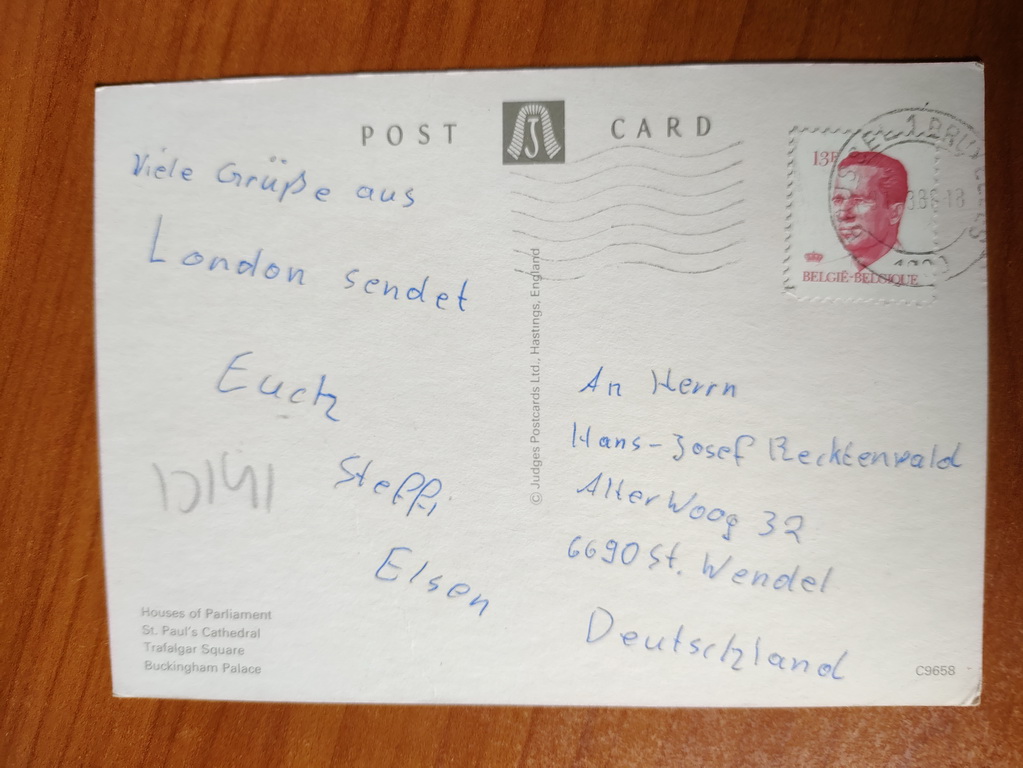 POST CARD
Viele Grüße aus
London sendet
Euch
Steffi
Elsen
Houses of Parliament
St. Paul's Cathedral
Trafalgar Square
Buckingham Palace
© Judges Postcards Ltd., Hastings, England
13F
BELGIË-BELGIQUE
An Herrn
Hans-Josef Recktenwald
Alter Woog 32
6690 St. Wendel
Deutschland
C9658